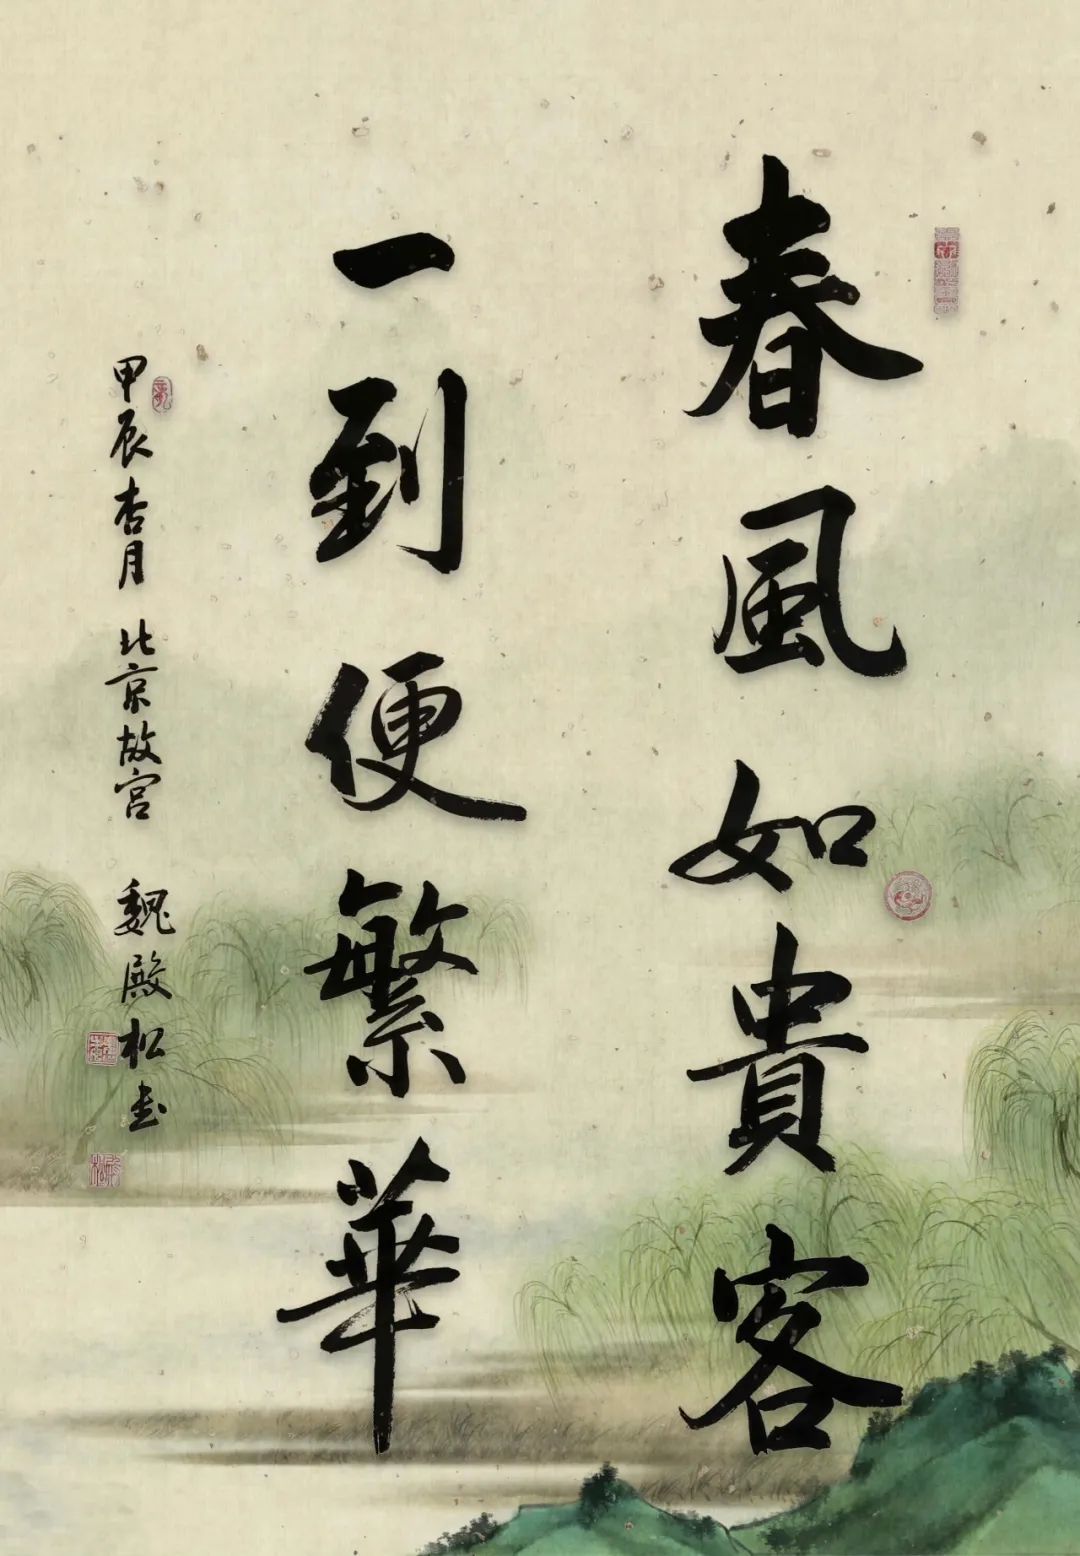 春風如貴客
一到便繁華
甲辰杏月 北京故宮 魏殿松书